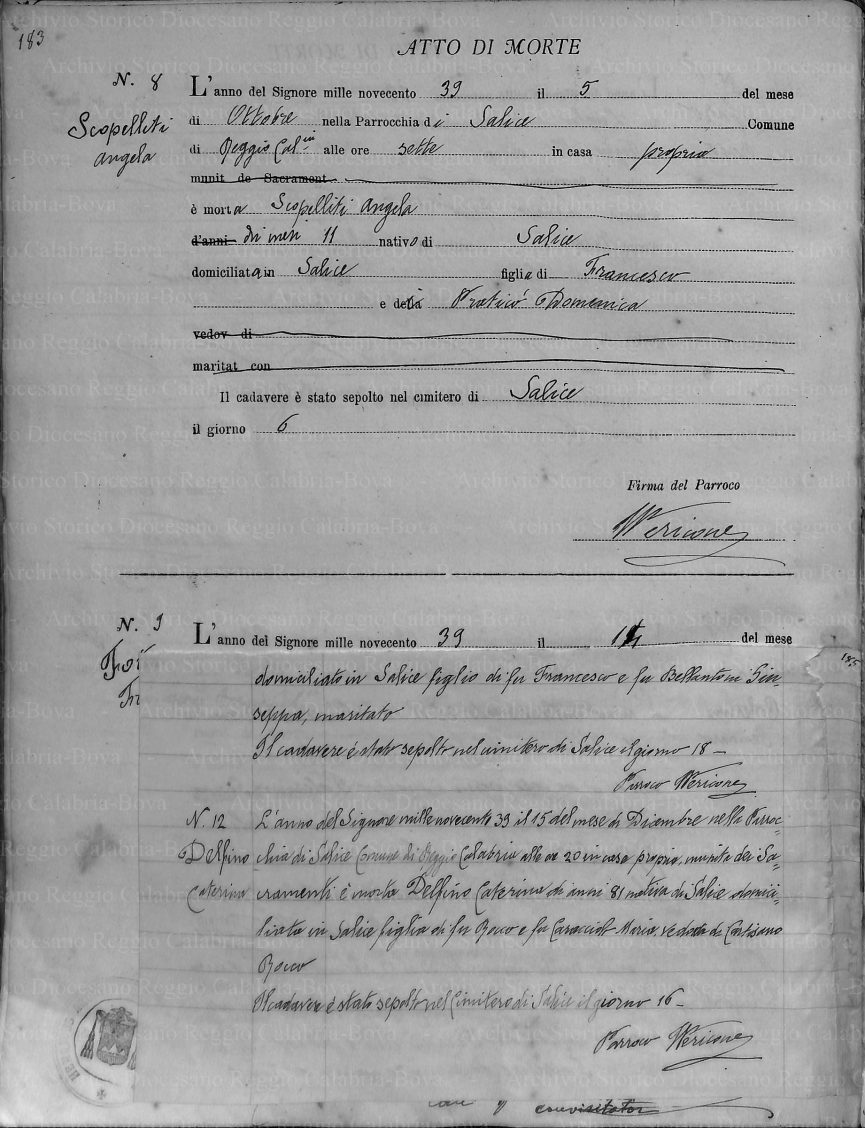 183
ATTO DI MORTE
N. 8 L'anno del Signore mille novecento 39 il 5 del mese
Scopelliti di Ottobre nella Parrocchia di Salice Comune
Angela di Reggio Cal alle ore sette in casa propria
munit de Sacrament
è morta Scopelliti Angela
d'anni di mesi 11 nativa di Salice
domiciliata in Salice figlia di Francesco
e di Praticó Domenica
vedov di
maritat con
Il cadavere è stato sepolto nel cimitero di Salice
il giorno 6
Firma del Parroco
N. 9 L'anno del Signore mille novecento 39 il 14 del mese
185
domiciliato in Salice figlio di fu Francesco e fu Bellantoni Giu-
seppa, maritato
Il cadavere é stato sepolto nel cimitero di Salice il giorno 18 -
Parroco
N. 12 L'anno del Signore mille novecento 39 il 15 del mese di Dicembre nella Parroc-
Delfino chia di Salice Comune di Reggio Calabria alle ore 20 in casa propria, munita dei Sa-
Caterina cramenti é morta Delfino Caterina di anni 81 nativa di Salice domici-
liata in Salice figlia di fu Rocco e fu Maria, vedova di
Rocco
Il cadavere é stato sepolto nel Cimitero di Salice il giorno 16 -
Parroco